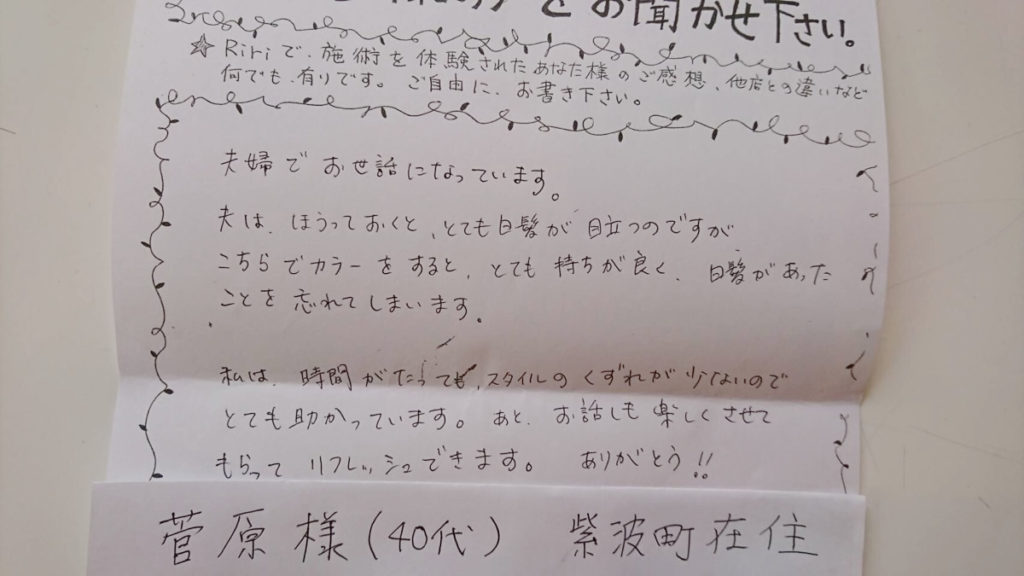 をお聞かせ下さい。
☆ Ririで、施術を体験されたあなた様のご感想、他店との違いなど
何でも、有りです。ご自由に、お書き下さい。
夫婦でお世話になっています。
夫は、ほうっておくと、とても白髪が目立つのですが
こちらでカラーをすると、とても持ちが良く、白髪があった
ことを忘れてしまいます。
私は、時間がたっても、スタイルのくずれが少ないので
とても助かっています。あと、お話しも楽しくさせて
もらってリフレッシュできます。ありがとう!!
菅原様(40代) 紫波町在住